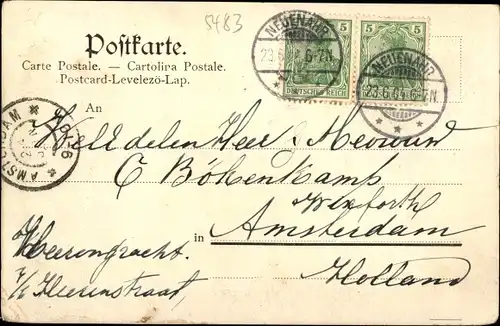 5483
Postkarte.
Carte Postale. — Cartolina Postale.
Postcard-Levelezö-Lap.
5 5
DEUTSCHES REICH
NEUENAHR
23.6.04 6-7N.
NEUENAHR
23.6.04 6-7N.
AMSTERDAM
An
Weledelen Heer Mevrouw
C Böhenkamp
in Amsterdam
Holland
Heerengracht
7/2 Heerenstraat,